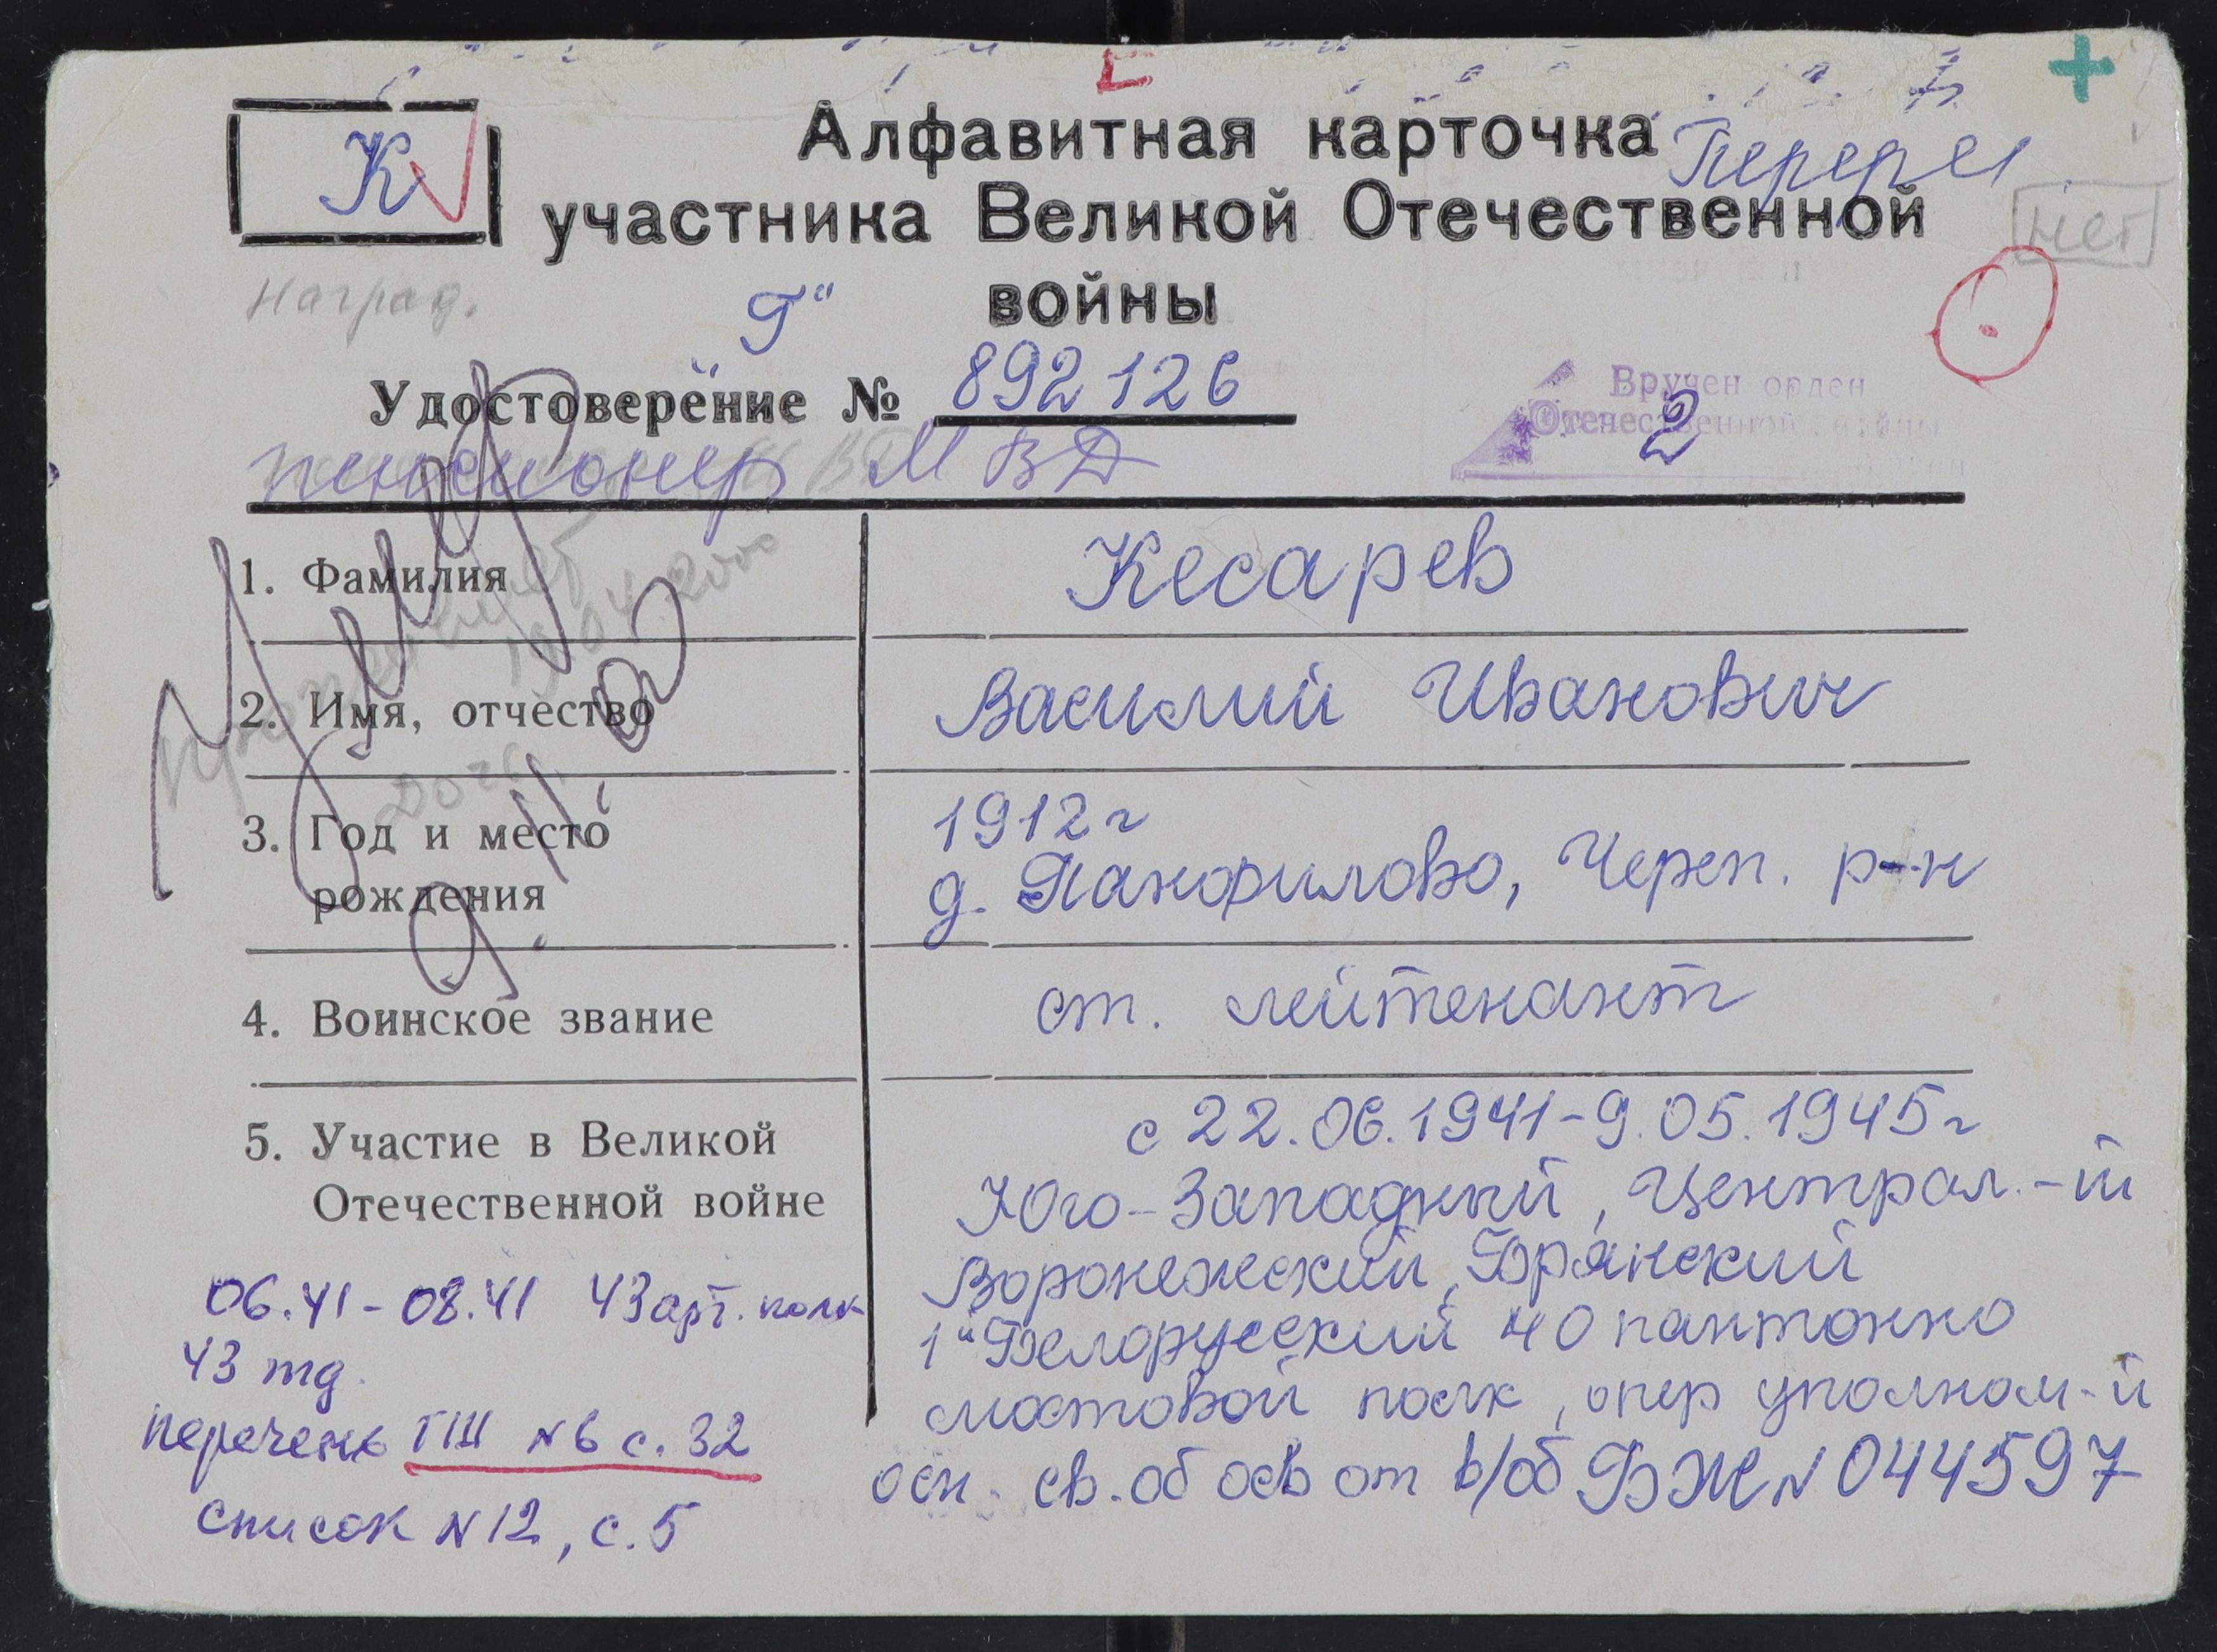 К
Алфавитная карточка
Перерег
участника Великой Отечественной
нет
войны
Наград.
Г"
Удостоверение № 892126
Вручен орден
Отечественной войны
2
пенсионер МВД
1. Фамилия
Кесарев
2. Имя, отчество
Василий Иванович
3. Год и место
рождения
1912 г
д. Панфилово, Череп. р-н
4. Воинское звание
ст. лейтенант
5. Участие в Великой
Отечественной войне
с 22.06.1941-9.05.1945 г
Юго-Западный, Централ.-й
Воронежский, Брянский
1й Белорусский 40 пантонно
мостовой полк, опер уполном-й
осн. св. об осв от в/об БЖ N 044597
06.41-08.41 43 арт. полк
43 тд.
перечень ГШ N6 с. 32
список N12, с. 5